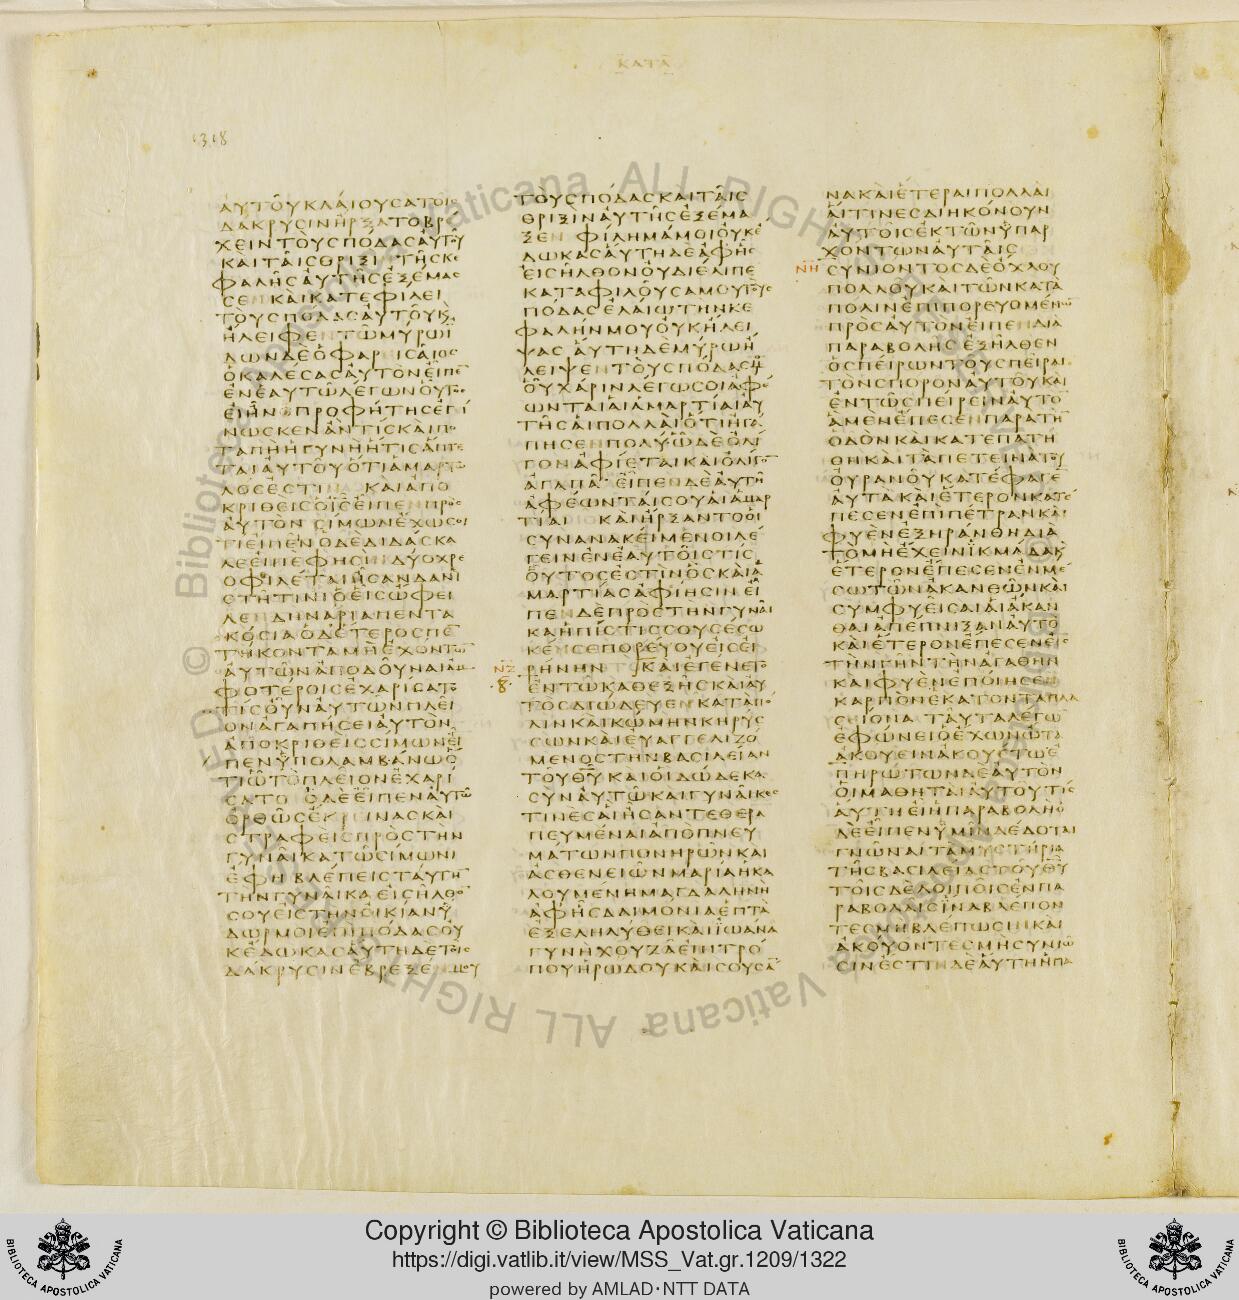 ΚΑΤΑ
1318
ΑΥΤΟΥ ΚΛΑΙΟΥΣΑ ΤΟΙΣ
ΔΑΚΡΥСΙΝ ΗΡΞΑΤΟ ΒΡΕ
ΧΕΙΝ ΤΟΥС ΠΟΔΑС ΑΥΤΟΥ
ΚΑΙ ΤΑΙС ΘΡΙΞΙ ΤΗС ΚΕ
ΦΑΛΗС ΑΥΤΗС ΕΞΕΜΑС
СΕΝ ΚΑΙ ΚΑΤΕΦΙΛΕΙ
ΤΟΥС ΠΟΔΑС ΑΥΤΟΥ Κ
ΗΛΕΙΦΕΝ ΤΩ ΜΥΡΩ Ι
ΔΩΝ ΔΕ Ο ΦΑΡΕΙСΑΙΟС
Ο ΚΑΛΕСΑС ΑΥΤΟΝ ΕΙΠΕ
ΕΝ ΕΑΥΤΩ ΛΕΓΩΝ ΟΥΤΟС
ΕΙ ΗΝ Ο ΠΡΟΦΗΤΗС ΕΓΙ
ΝΩСΚΕΝ ΑΝ ΤΙС ΚΑΙ ΠΟ
ΤΑΠΗ Η ΓΥΝΗ ΗΤΙС ΑΠΤΕ
ΤΑΙ ΑΥΤΟΥ ΟΤΙ ΑΜΑΡΤΩ
ΛΟС ΕСΤΙΝ ΚΑΙ ΑΠΟ
ΚΡΙΘΕΙС Ο ΙС ΕΙΠΕΝ ΠΡΟС
ΑΥΤΟΝ СΙΜΩΝ ΕΧΩ СΟΙ
ΤΙ ΕΙΠΕΙΝ Ο ΔΕ ΔΙΔΑСΚΑ
ΛΕ ΕΙΠΕ ΦΗСΙΝ ΔΥΟ ΧΡΕ
ΟΦΙΛΕΤΑΙ ΗСΑΝ ΔΑΝΙ
СΤΗ ΤΙΝΙ Ο ΕΙС ΩΦΕΙ
ΛΕΝ ΔΗΝΑΡΙΑ ΠΕΝΤΑ
ΚΟСΙΑ Ο ΔΕ ΕΤΕΡΟС ΠΕ
ΤΗΚΟΝΤΑ ΜΗ ΕΧΟΝΤΩ
ΑΥΤΩΝ ΑΠΟΔΟΥΝΑΙ ΑΜ
ΦΟΤΕΡΟΙС ΕΧΑΡΙСΑΤΟ
ΤΙС ΟΥΝ ΑΥΤΩΝ ΠΛΕΙ
ΟΝ ΑΓΑΠΗСΕΙ ΑΥΤΟΝ
ΑΠΟΚΡΙΘΕΙС СΙΜΩΝ ΕΙ
ΠΕΝ ΥΠΟΛΑΜΒΑΝΩ Ο
ΤΙ Ω ΤΟ ΠΛΕΙΟΝ ΕΧΑΡΙ
СΑΤΟ Ο ΔΕ ΕΙΠΕΝ ΑΥΤΩ
ΟΡΘΩС ΕΚΡΙΝΑС ΚΑΙ
СΤΡΑΦΕΙС ΠΡΟС ΤΗΝ
ΓΥΝΑΙΚΑ ΤΩ СΙΜΩΝΙ
ΕΦΗ ΒΛΕΠΕΙС ΤΑΥΤΗ
ΤΗΝ ΓΥΝΑΙΚΑ ΕΙСΗΛΘΟ
СΟΥ ΕΙС ΤΗΝ ΟΙΚΙΑΝ Υ
ΔΩΡ ΜΟΙ ΕΠΙ ΠΟΔΑС ΟΥ
Κ ΕΔΩΚΑС ΑΥΤΗ ΔΕ ΤΟΙС
ΔΑΚΡΥСΙΝ ΕΒΡΕΞΕΝ ΜΟΥ
ΤΟΥС ΠΟΔΑС ΚΑΙ ΤΑΙС
ΘΡΙΞΙΝ ΑΥΤΗС ΕΞΕΜΑ
ΞΕΝ ΦΙΛΗΜΑ ΜΟΙ ΟΥΚ Ε
ΔΩΚΑС ΑΥΤΗ ΔΕ ΑΦ ΗС
ΕΙСΗΛΘΟΝ ΟΥ ΔΙΕΛΙΠΕ
ΚΑΤΑΦΙΛΟΥСΑ ΜΟΥ ΤΟΥС
ΠΟΔΑС ΕΛΑΙΩ ΤΗΝ ΚΕ
ΦΑΛΗΝ ΜΟΥ ΟΥΚ ΗΛΕΙ
ΨΑС ΑΥΤΗ ΔΕ ΜΥΡΩ Η
ΛΕΙΨΕΝ ΤΟΥС ΠΟΔΑС Μ
ΟΥ ΧΑΡΙΝ ΛΕΓΩ СΟΙ ΑΦΕ
ΩΝΤΑΙ ΑΙ ΑΜΑΡΤΙΑΙ ΑΥ
ΤΗС ΑΙ ΠΟΛΛΑΙ ΟΤΙ ΗΓΑ
ΠΗСΕΝ ΠΟΛΥ Ω ΔΕ ΟΛΙ
ΓΟΝ ΑΦΙΕΤΑΙ ΚΑΙ ΟΛΙΓΟ
ΑΓΑΠΑ ΕΙΠΕΝ ΔΕ ΑΥΤΗ
ΑΦΕΩΝΤΑΙ СΟΥ ΑΙ ΑΜΑΡ
ΤΙΑΙ ΚΑΙ ΗΡΞΑΝΤΟ ΟΙ
СΥΝΑΝΑΚΕΙΜΕΝΟΙ ΛΕ
ΓΕΙΝ ΕΝ ΕΑΥΤΟΙС ΤΙС
ΟΥΤΟС ΕСΤΙΝ ΟС ΚΑΙ Α
ΜΑΡΤΙΑС ΑΦΙΗСΙΝ ΕΙ
ΠΕΝ ΔΕ ΠΡΟС ΤΗΝ ΓΥΝΑΙ
ΚΑ Η ΠΙСΤΙС СΟΥ СΕСΩ
ΚΕΝ СΕ ΠΟΡΕΥΟΥ ΕΙС ΕΙ
ΝΖ ΡΗΝΗΝ ΚΑΙ ΕΓΕΝΕΤΟ
8 ΕΝ ΤΩ ΚΑΘΕΞΗС ΚΑΙ ΑΥ
ΤΟС ΔΙΩΔΕΥΕΝ ΚΑΤΑ ΠΟ
ΛΙΝ ΚΑΙ ΚΩΜΗΝ ΚΗΡΥС
СΩΝ ΚΑΙ ΕΥΑΓΓΕΛΙΖΟ
ΜΕΝΟС ΤΗΝ ΒΑСΙΛΕΙΑΝ
ΤΟΥ ΘΥ ΚΑΙ ΟΙ ΔΩΔΕΚΑ
СΥΝ ΑΥΤΩ ΚΑΙ ΓΥΝΑΙΚΕС
ΤΙΝΕС ΑΙ ΗСΑΝ ΤΕΘΕΡΑ
ΠΕΥΜΕΝΑΙ ΑΠΟ ΠΝΕΥ
ΜΑΤΩΝ ΠΟΝΗΡΩΝ ΚΑΙ
ΑСΘΕΝΕΙΩΝ ΜΑΡΙΑ Η ΚΑ
ΛΟΥΜΕΝΗ ΜΑΓΔΑΛΗΝΗ
ΑΦ ΗС ΔΑΙΜΟΝΙΑ ΕΠΤΑ
ΕΞΕΛΗΛΥΘΕΙ ΚΑΙ ΙΩΑΝΑ
ΓΥΝΗ ΧΟΥΖΑ ΕΠΙΤΡΟ
ΠΟΥ ΗΡΩΔΟΥ ΚΑΙ СΟΥСΑ
ΝΑ ΚΑΙ ΕΤΕΡΑΙ ΠΟΛΛΑΙ
ΑΙΤΙΝΕС ΔΙΗΚΟΝΟΥΝ
ΑΥΤΟΙС ΕΚ ΤΩΝ ΥΠΑΡ
ΧΟΝΤΩΝ ΑΥΤΑΙС
ΝΗ СΥΝΙΟΝΤΟС ΔΕ ΟΧΛΟΥ
ΠΟΛΛΟΥ ΚΑΙ ΤΩΝ ΚΑΤΑ
ΠΟΛΙΝ ΕΠΙΠΟΡΕΥΟΜΕΝΩ
ΠΡΟС ΑΥΤΟΝ ΕΙΠΕΝ ΔΙΑ
ΠΑΡΑΒΟΛΗС ΕΞΗΛΘΕΝ
Ο СΠΕΙΡΩΝ ΤΟΥ СΠΕΙΡΑΙ
ΤΟΝ СΠΟΡΟΝ ΑΥΤΟΥ ΚΑΙ
ΕΝ ΤΩ СΠΕΙΡΕΙΝ ΑΥΤΟ
Α ΜΕΝ ΕΠΕСΕΝ ΠΑΡΑ ΤΗ
ΟΔΟΝ ΚΑΙ ΚΑΤΕΠΑΤΗ
ΘΗ ΚΑΙ ΤΑ ΠΕΤΕΙΝΑ ΤΟΥ
ΟΥΡΑΝΟΥ ΚΑΤΕΦΑΓΕ
ΑΥΤΑ ΚΑΙ ΕΤΕΡΟΝ ΚΑΤΕ
ΠΕСΕΝ ΕΠΙ ΠΕΤΡΑΝ ΚΑΙ
ΦΥΕΝ ΕΞΗΡΑΝΘΗ ΔΙΑ
ΤΟ ΜΗ ΕΧΕΙΝ ΙΚΜΑΔΑ Κ
ΕΤΕΡΟΝ ΕΠΕСΕΝ ΕΝ ΜΕ
СΩ ΤΩΝ ΑΚΑΝΘΩΝ ΚΑΙ
СΥΜΦΥΕΙСΑΙ ΑΙ ΑΚΑΝ
ΘΑΙ ΑΠΕΠΝΙΞΑΝ ΑΥΤΟ
ΚΑΙ ΕΤΕΡΟΝ ΕΠΕСΕΝ ΕΙС
ΤΗΝ ΓΗΝ ΤΗΝ ΑΓΑΘΗΝ
ΚΑΙ ΦΥΕΝ ΕΠΟΙΗСΕΝ
ΚΑΡΠΟΝ ΕΚΑΤΟΝΤΑΠΛΑ
СΙΟΝΑ ΤΑΥΤΑ ΛΕΓΩ
ΕΦΩΝΕΙ Ο ΕΧΩΝ ΩΤΑ
ΑΚΟΥΕΙΝ ΑΚΟΥΕΤΩ Ε
ΠΗΡΩΤΩΝ ΔΕ ΑΥΤΟΝ
ΟΙ ΜΑΘΗΤΑΙ ΑΥΤΟΥ ΤΙС
ΑΥΤΗ ΕΙΗ Η ΠΑΡΑΒΟΛΗ Ο
ΔΕ ΕΙΠΕΝ ΥΜΙΝ ΔΕΔΟΤΑΙ
ΓΝΩΝΑΙ ΤΑ ΜΥСΤΗΡΙΑ
ΤΗС ΒΑСΙΛΕΙΑС ΤΟΥ ΘΥ
ΤΟΙС ΔΕ ΛΟΙΠΟΙС ΕΝ ΠΑ
ΡΑΒΟΛΑΙС ΙΝΑ ΒΛΕΠΟΝ
ΤΕС ΜΗ ΒΛΕΠΩСΙΝ ΚΑΙ
ΑΚΟΥΟΝΤΕС ΜΗ СΥΝΙΩ
СΙΝ ΕСΤΙΝ ΔΕ ΑΥΤΗ Η ΠΑ
Copyright © Biblioteca Apostolica Vaticana
https://digi.vatlib.it/view/MSS_Vat.gr.1209/1322
powered by AMLAD·NTT DATA
BIBLIOTECA APOSTOLICA VATICANA
BIBLIOTECA APOSTOLICA VATICANA